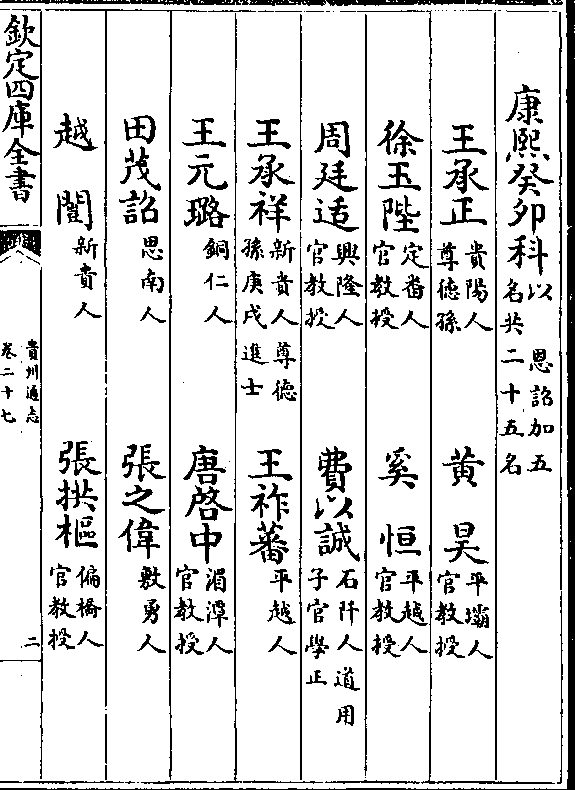 康熙癸卯科以恩詔加五名共二十五名
王承正貴陽人尊德孫　黄昊平壩人官教授
徐玉陛定番人官教授　奚恒平越人官教授
周廷适興隆人官教授　費以誠石阡人道用子官學正
王承祥新貴人尊德孫庚戌進士　王祚蕃平越人
王元璐銅仁人　唐啓中湄潭人官教授
田茂詔思南人　張之偉敷勇人
越闓新貴人　張拱樞偏橋人官教授
欽定四庫全書
貴州通志
卷二十七
二